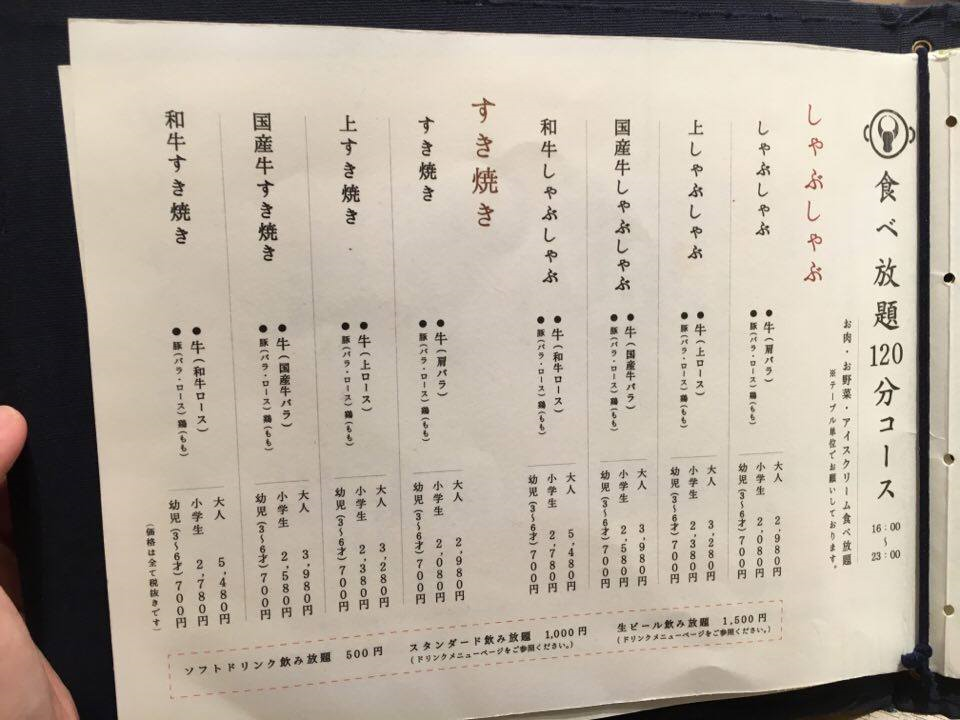 食べ放題120分コース
16:00
〜
23:00
お肉・お野菜・アイスクリーム食べ放題
※テーブル単位でお願いしております。
しゃぶしゃぶ
しゃぶしゃぶ
●牛(肩バラ)
●豚(バラ・ロース)鶏(もも)
大人 2,980円
小学生 2,080円
幼児(3〜6才)700円
上しゃぶしゃぶ
●牛(上ロース)
●豚(バラ・ロース)鶏(もも)
大人 3,280円
小学生 2,380円
幼児(3〜6才)700円
国産牛しゃぶしゃぶ
●牛(国産牛バラ)
●豚(バラ・ロース)鶏(もも)
大人 3,980円
小学生 2,580円
幼児(3〜6才)700円
和牛しゃぶしゃぶ
●牛(和牛ロース)
●豚(バラ・ロース)鶏(もも)
大人 5,480円
小学生 2,780円
幼児(3〜6才)700円
すき焼き
すき焼き
●牛(肩バラ)
●豚(バラ・ロース)鶏(もも)
大人 2,980円
小学生 2,080円
幼児(3〜6才)700円
上すき焼き
●牛(上ロース)
●豚(バラ・ロース)鶏(もも)
大人 3,280円
小学生 2,380円
幼児(3〜6才)700円
国産牛すき焼き
●牛(国産牛バラ)
●豚(バラ・ロース)鶏(もも)
大人 3,980円
小学生 2,580円
幼児(3〜6才)700円
和牛すき焼き
●牛(和牛ロース)
●豚(バラ・ロース)鶏(もも)
大人 5,480円
小学生 2,780円
幼児(3〜6才)700円
(価格は全て税抜きです)
ソフトドリンク飲み放題 500円
スタンダード飲み放題 1,000円
(ドリンクメニューページをご参照ください。)
生ビール飲み放題 1,500円
(ドリンクメニューページをご参照ください。)